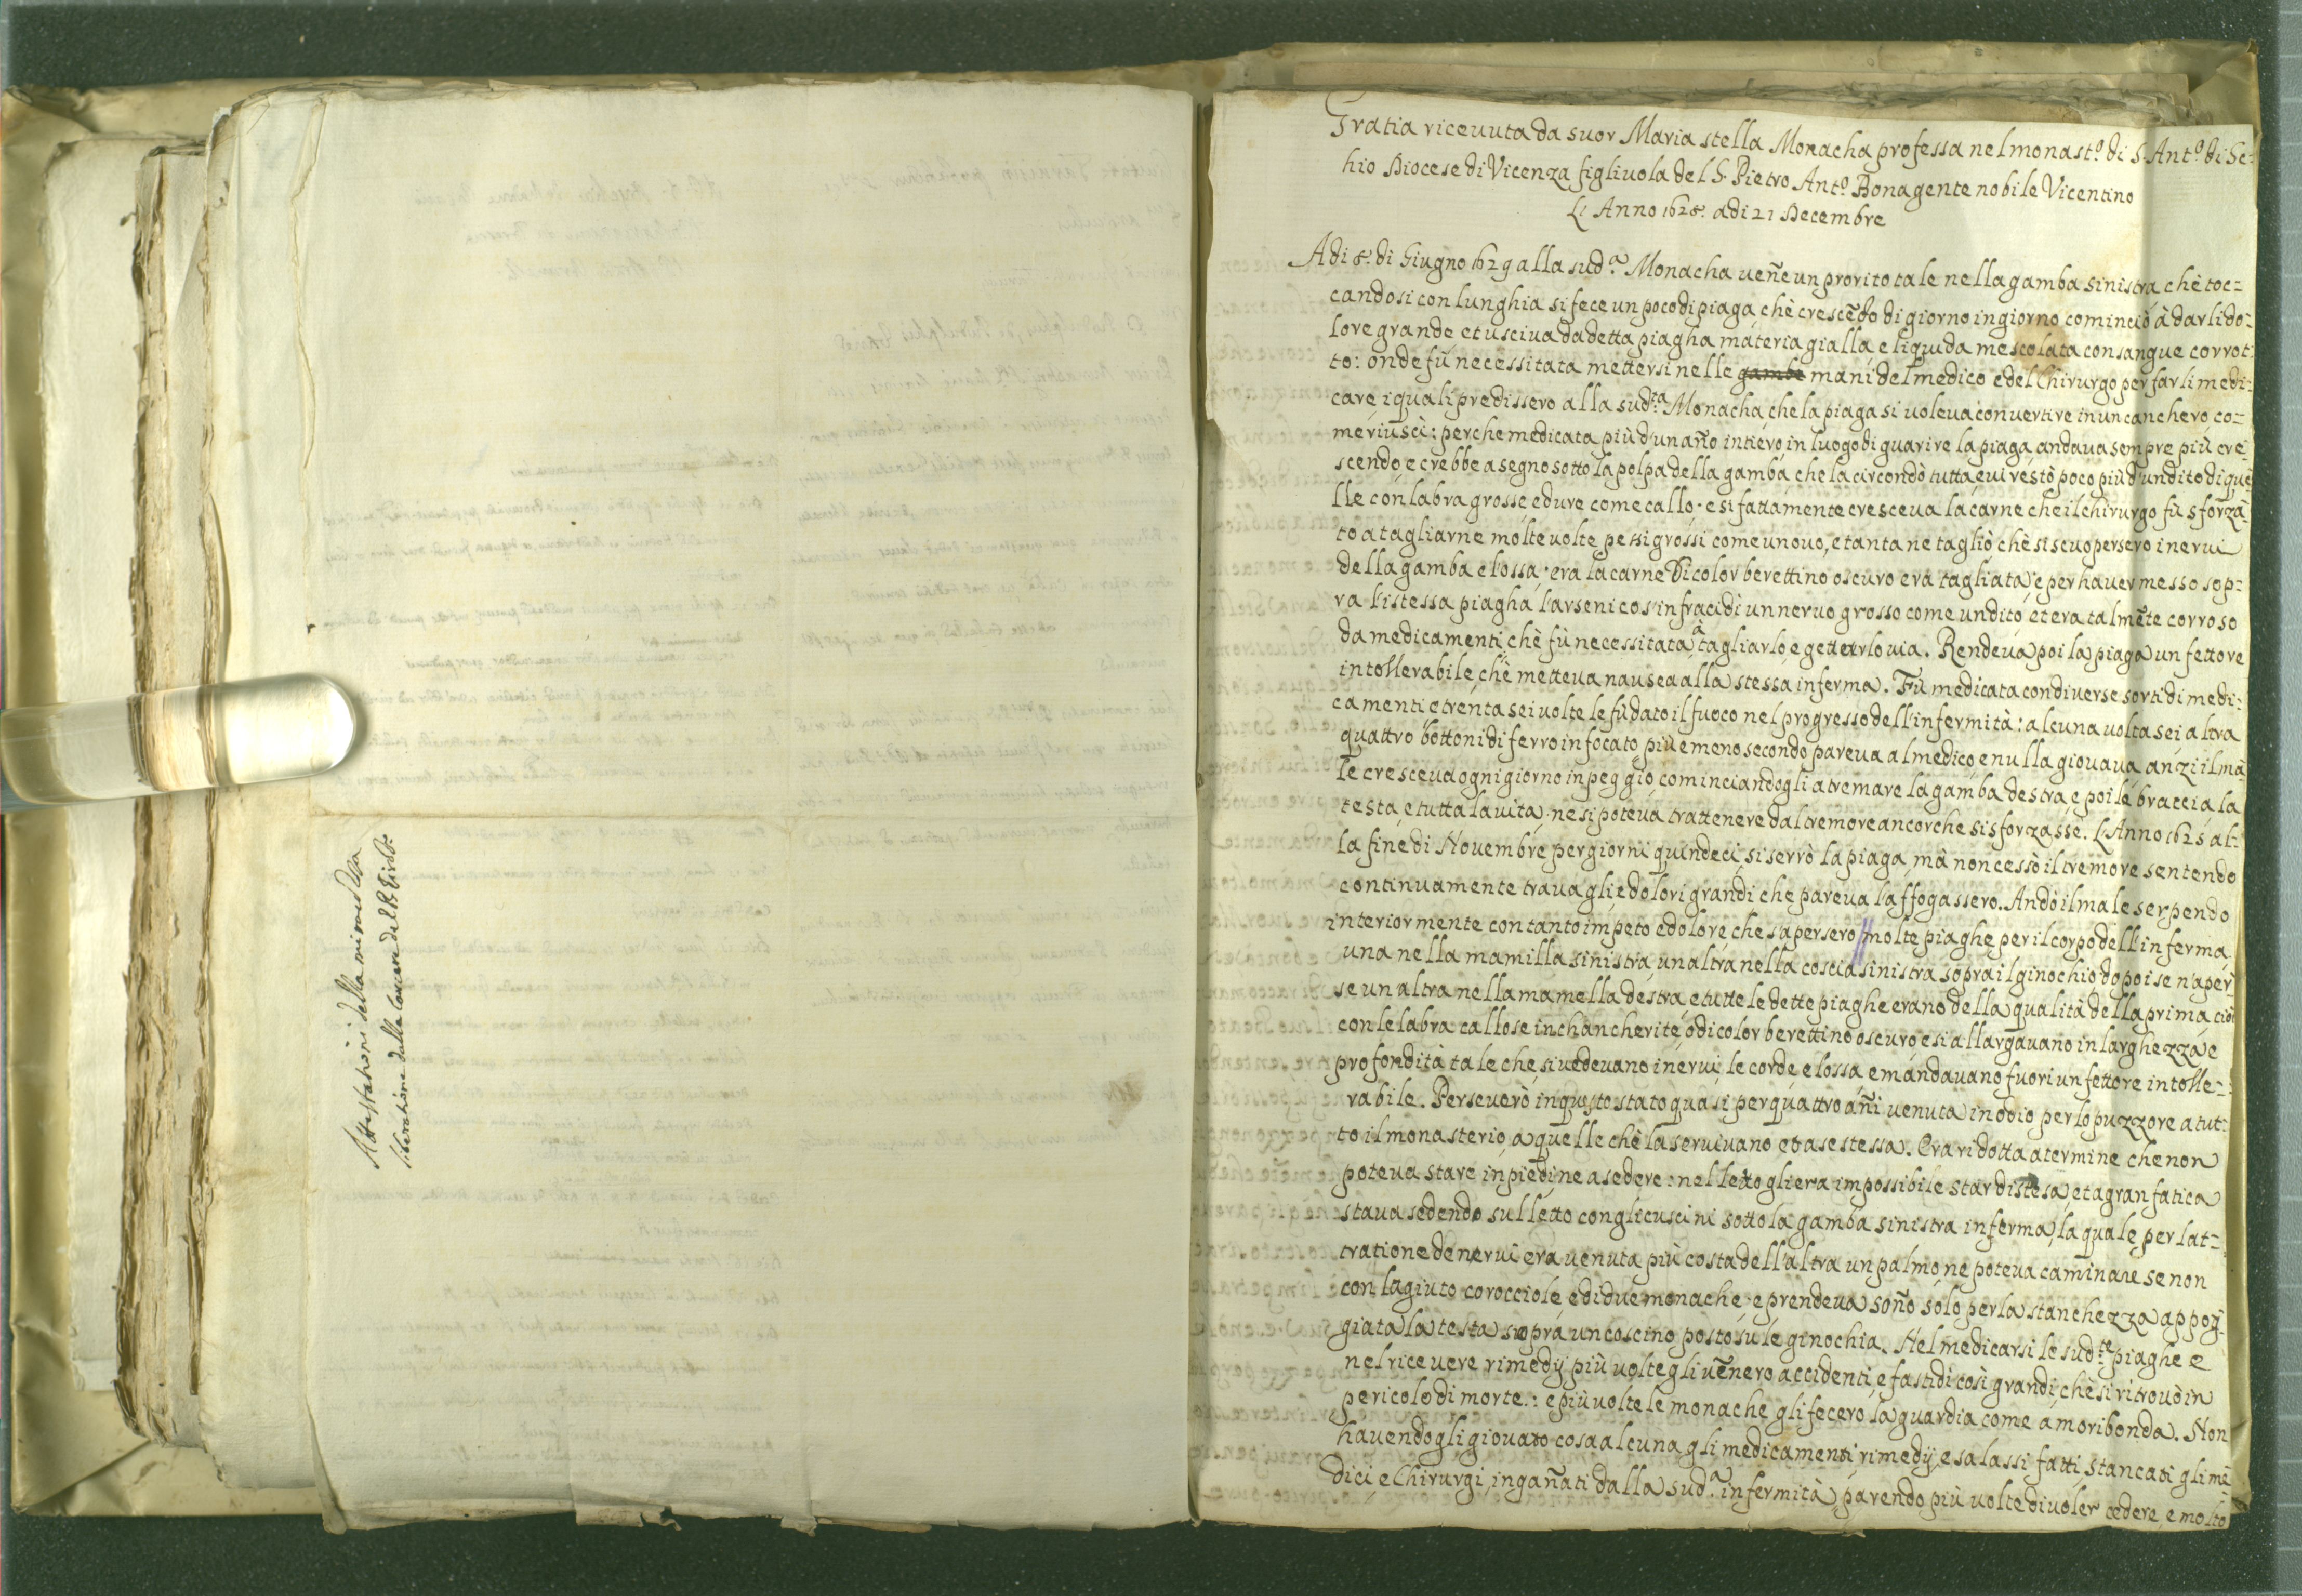 Attestationi della miracolosa
liberatione dalla Carcere del P. Girol.º
Gratia riceuuta da suor Maria stella Monacha professa nel monast.º di S. Ant.º di Sc-
hio Diocese di Vicenza figliuola del S. Pietro Ant.º Bonagente nobile Vicentino
L'Anno 1628. adi 21 Decembre
Adi 8. di Giugno 1629 alla sud.ª Monacha ueñe un prorito tale nella gamba sinistra chè toc=
candosi con lunghia si fece un poco di piaga chè crescẽdo di giorno in giorno cominciò à darli do=
lore grande et usciua da detta piagha materia gialla e liquida mescolata con sangue corrot=
to: onde fù necessitata mettersi nelle gambe mani del medico e del Chirurgo per farli medi=
care i quali predissero alla sud.ta Monacha che la piaga si uoleua conuertire in un canchero, co=
me riuscì: perche medicata più d'un año intiero in luogo di guarire la piaga, andaua sempre più cre=
scendo, e crebbe a segno sotto la polpa della gamba che la circondò tutta, e ui restò poco più d'un dito di que=
lle con labra grosse e dure come callo. e si fattamente cresceua la carne che il chirurgo fù sforza=
to a tagliarne molte uolte pessi grossi come un ouo, e tanta ne tagliò chè si scuopersero i nerui
della gamba e l'ossa. era la carne di color berettino oscuro era tagliata e per hauer messo sop=
ra l'istessa piagha l'arsenico s'infracidì un neruo grosso come un dito, et era talmẽte corroso
da medicamenti, chè fù necessitata à tagliarlo, e gettarlo uia. Rendeua poi la piaga un fettore
intollerabile, chè metteua nausea alla stessa inferma. Fù medicata con diuerse sorti di medi=
camenti e trenta sei uolte le fù dato il fuoco nel progresso dell'infermità: alcuna uolta sei altra
quattro bottoni di ferro infocato, più e meno secondo pareua al medico e nulla giouaua, anzi il ma=
le cresceua ogni giorno in peggio, cominciandogli a tremare la gamba destra, e poi le braccia la
testa, e tutta la uita. ne si poteua trattenere dal tremore ancorche si sforzasse. L'Anno 1625 al=
la fine di Nouembre, per giorni quindeci, si serrò la piaga, mà non cessò il tremore sentendo
continuamente trauagli e dolori grandi che pareua l'affogassero. Andò il male serpendo
interiormente con tanto impeto e dolore che s'apersero // molte piaghe per il corpo dell'inferma.
una nella mamilla sinistra, un altra nella coscia sinistra sopra il ginochio, dopoi se n'aper=
se un altra nella mamella destra, e tutte le dette piaghe erano della qualità della prima cioè
con le labra callose inchancherite, e di color berettino oscuro e si allargauano in larghezza, e
profondità tale che, si uedeuano i nerui, le corde, e l'ossa e mandauano fuori un fettore intolle=
rabile. Perseuerò in questo stato quasi per quattro añi uenuta in odio per lo puzzore a tut=
to il monasterio, a quelle chè la seruiuano et a se stessa. Era ridotta a termine che non
poteua stare in piedi, ne a sedere: nel letto gli era impossibile star distesa, et a gran fatica
staua sedendo sul letto con gli cuscini sotto la gamba sinistra inferma, la quale per lat=
tratione de nerui era uenuta più costa dell'altra un palmo, ne poteua caminare se non
con l'agiuto corocciole e di due monache. e prendeua soño solo per la stanchezza appog=
giata la testa sopra un coscino posto su le ginochia. Nel medicarsi le sud.te piaghe e
nel riceuere rimedij più uolte gli uẽnero accidenti, e fastidi così grandi, chè si ritrouò in
pericolo di morte: e più uolte le monache gli fecero la guardia come à moribonda. Non
hauendogli giouato cosa alcuna gli medicamenti, rimedij, e salassi fatti, stancati gli me=
dici, e Chirurgi, ingañati dalla sud.ª infermità, parendo più uolte di uoler cedere, e molto